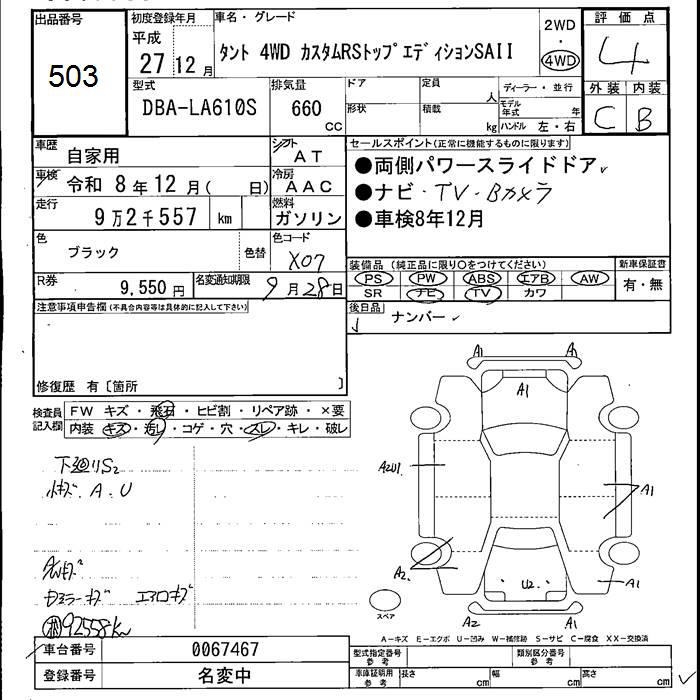 出品番号
503
初度登録年月
平成
27 12 月
車名・グレード
タント 4WD カスタムRSトップエディションSAII
2WD
・
4WD
評価点
4
外装 内装
C B
型式
DBA-LA610S
排気量
660
cc
ドア
形状
定員
人
積載
kg
ディーラー・並行
モデル年式 年
ハンドル 左・右
車歴
自家用
シフト
AT
車検
令和 8年12月( 日)
冷房
AAC
走行
9万2千557 km
燃料
ガソリン
色
ブラック
色替
色コード
X07
R券
9,550 円
名変通知期限
9月28日
セールスポイント(正常に機能するものに限ります)
●両側パワースライドドア
●ナビ・TV・Bカメラ
●車検8年12月
装備品(純正品に限り○をつけてください)
PS PW ABS エアB AW
SR ナビ TV カワ
新車保証書
有・無
後日品
ナンバー
注意事項申告欄(不具合内容等は具体的に記入して下さい)
修復歴 有〔箇所 〕
検査員記入欄
FW キズ・飛石・ヒビ割・リペア跡・×要
内装 キズ・汚レ・コゲ・穴・スレ・キレ・破レ
下廻りS2
小キズ A.U
AWキズ
エアロキズ
92558km
A1 A1
A1
A2U1
A1
A2
A1
U2
A2 A1
スペア
A-キズ E-エクボ U-凹み W-補修跡 S-サビ C-腐食 XX-交換済
車台番号
0067467
登録番号
名変中
型式指定番号
参考
類別区分番号
参考
車庫証明用
参考
長さ cm
幅 cm
高さ cm